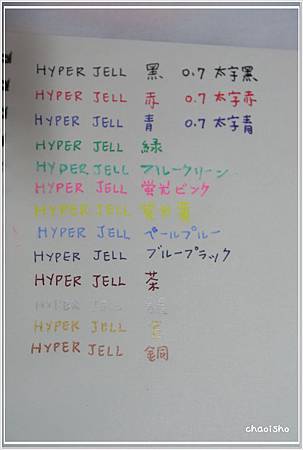 HYPER JELL 黒 0.7 太字黒
HYPER JELL 赤 0.7 太字赤
HYPER JELL 青 0.7 太字青
HYPER JELL 緑
HYPER JELL ブルーグリーン
HYPER JELL 蛍光ピンク
HYPER JELL 蛍光黄
HYPER JELL ペールブルー
HYPER JELL ブルーブラック
HYPER JELL 茶
HYPER JELL
HYPER JELL 金
HYPER JELL 銅
chaoisho